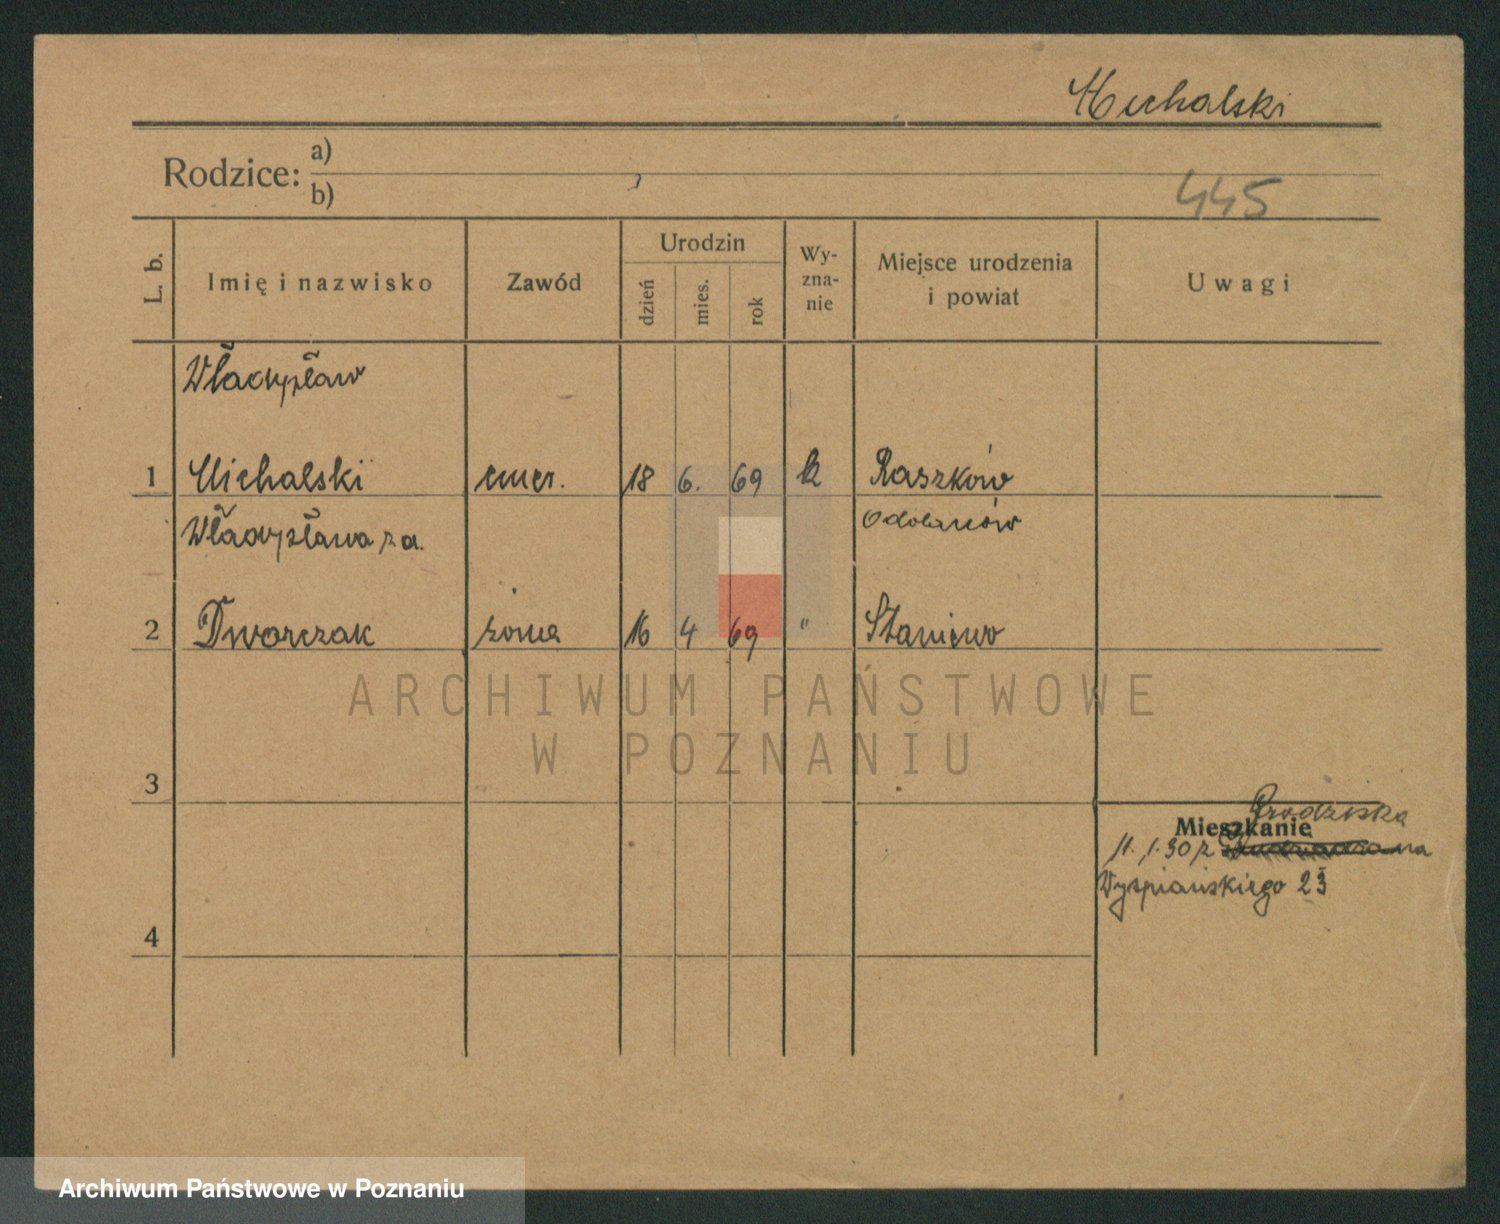 Michalski
Rodzice: a)
b)
445
L. b.
Imię i nazwisko
Zawód
Urodzin
dzień
mies.
rok
Wy-
zna-
nie
Miejsce urodzenia
i powiat
Uwagi
Władysław
1 Michalski emer. 18 6. 69 k Raszków
Władysława z d. Odolanów
2 Dworczak żona 16 4 69 " Staniewo
ARCHIWUM PAŃSTWOWE
W POZNANIU
3
Mieszkanie
11. 1. 30 z
Wyspiańskiego 23
4
Archiwum Państwowe w Poznaniu